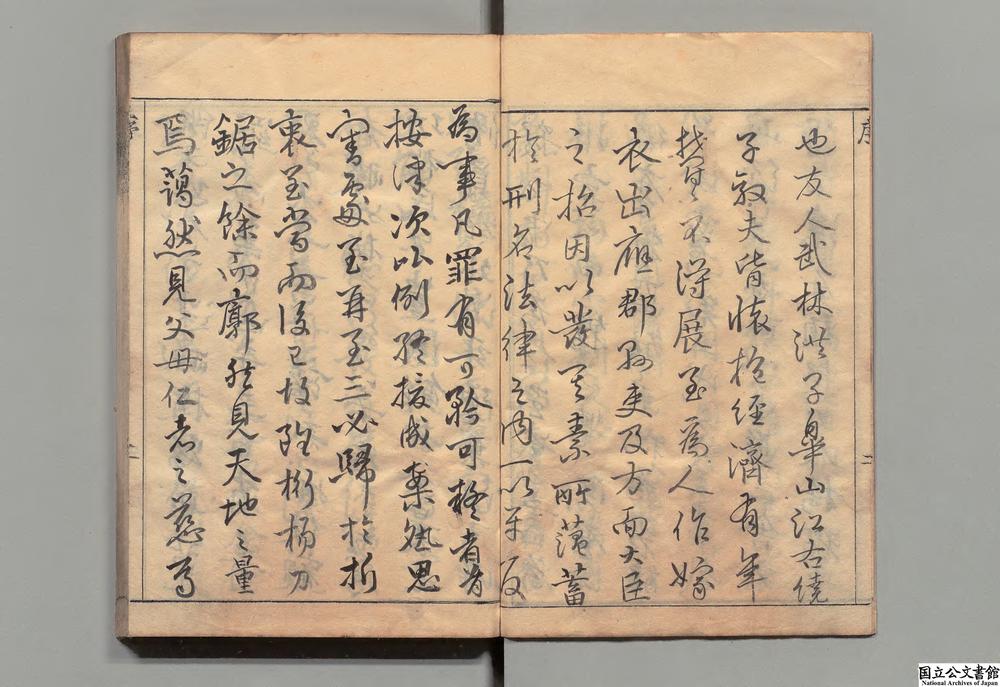 序
也友人武林洪子皐山江右饒
子敦夫皆懷抱經濟有年
不得展至為人作嫁
衣出應郡縣吏及方面大臣
之招因以發其素所蓄
於刑名法律之內一以平反
為事凡罪有可矜可疑者
按律次以例援成案熟思
審處至再至三必歸於折
衷至當而後已故雖桁楊刀
鋸之餘而廓然見天地之量
焉藹然見父母仁者之慈焉
国立公文書館
National Archives of Japan